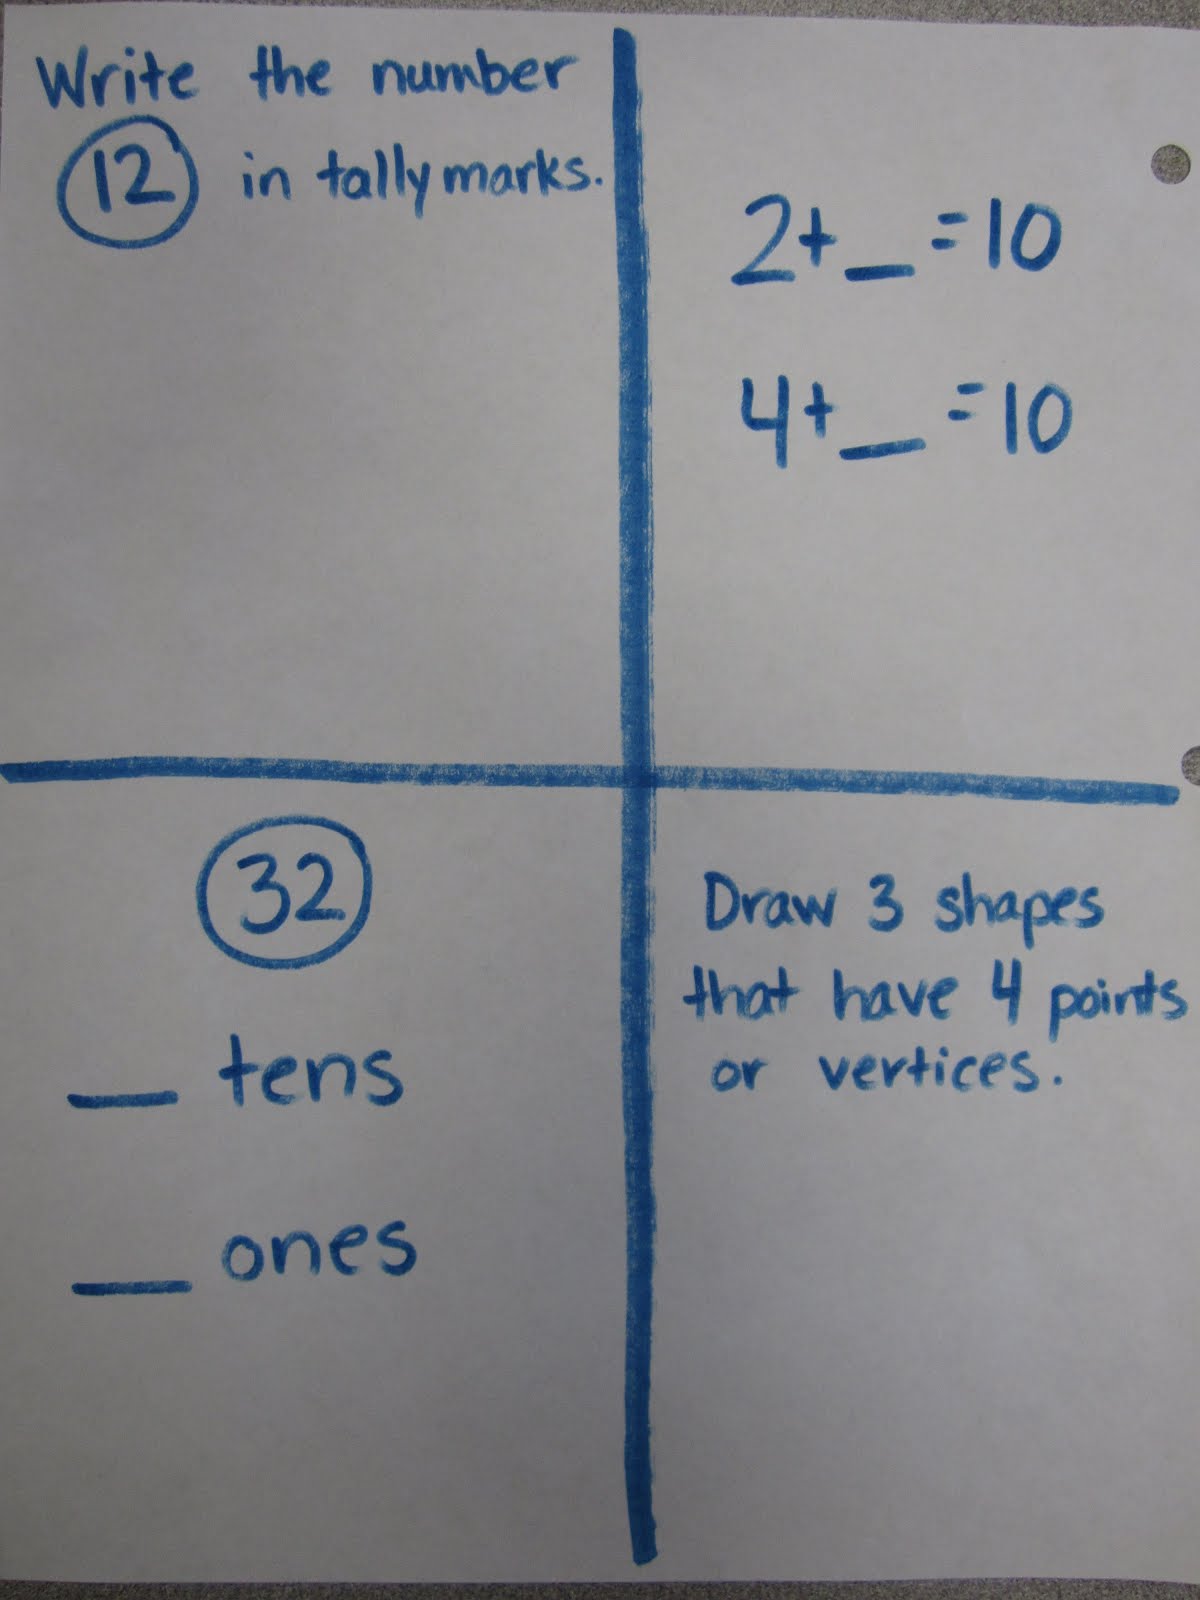 Write the number
12 in tally marks.
2+__=10
4+__=10
32
__ tens
__ ones
Draw 3 shapes
that have 4 points
or vertices.